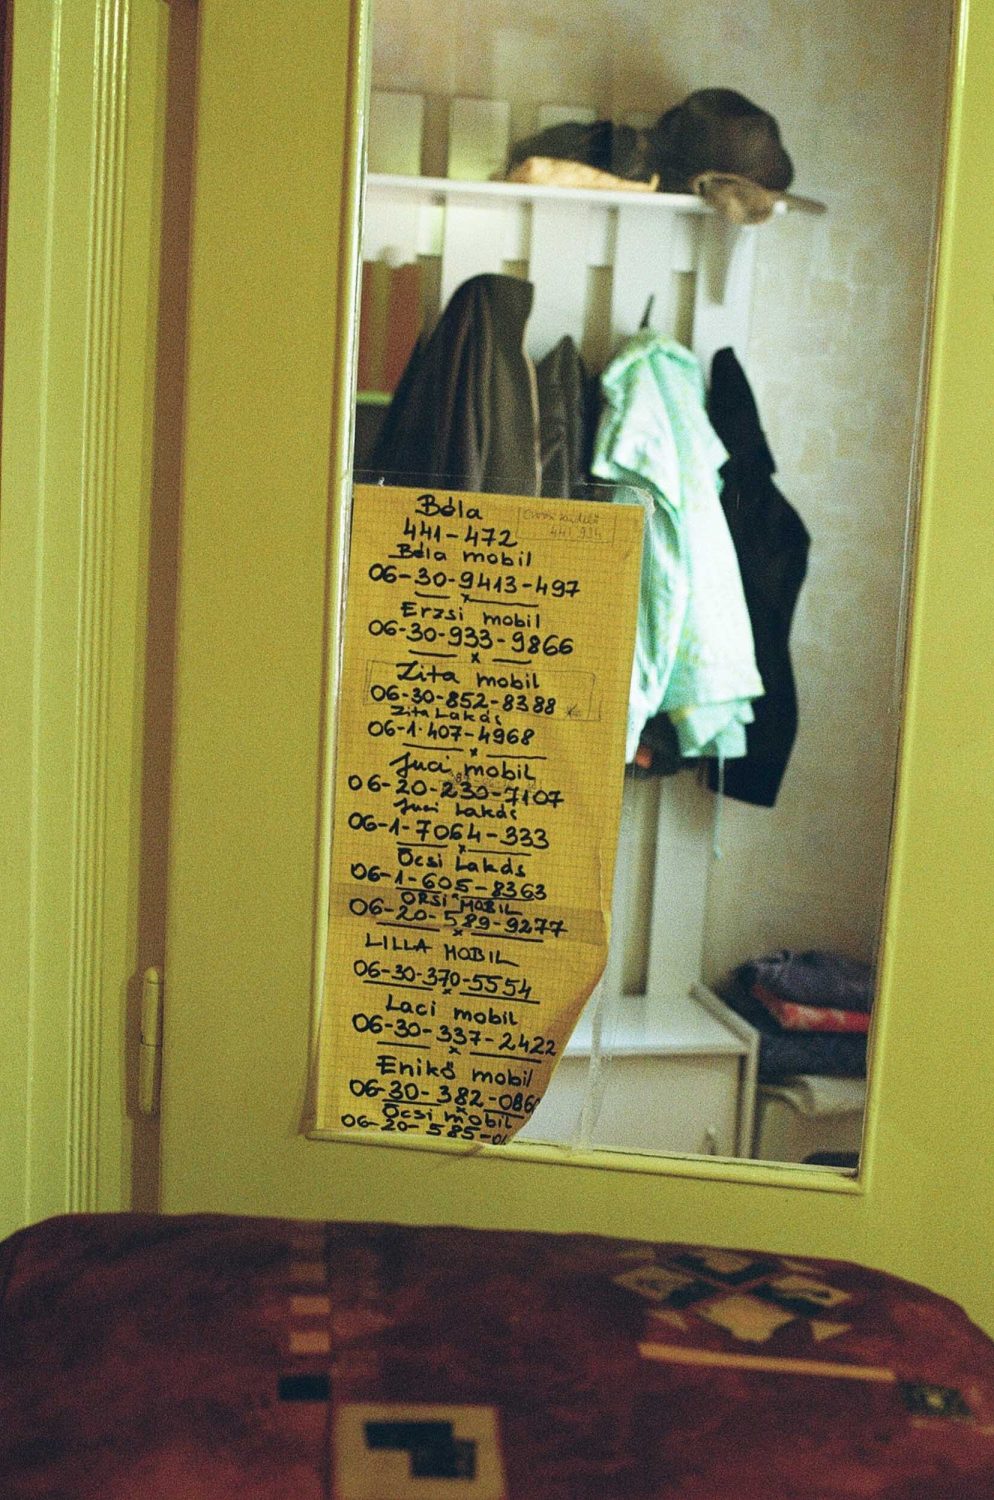 Béla
441-472
Béla mobil
06-30-9413-497
Erzsi mobil
06-30-933-9866
Zita mobil
06-30-852-8388
Zita Lakás
06-1-407-4968
Juci mobil
06-20-230-7107
Juci Lakás
06-1-7064-333
Öcsi Lakás
06-1-605-8363
ORSI MOBIL
06-20-589-9277
LILLA MOBIL
06-30-370-5554
Laci mobil
06-30-337-2422
Enikő mobil
06-30-382-086
Öcsi mobil
06-20-585-0